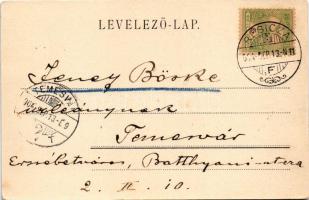 LEVELEZŐ-LAP.
Jeney Böske
urleánynak
Temesvár
Erzsébetváros, Batthyani-utcza
2. II. 10.
TEMESVÁR